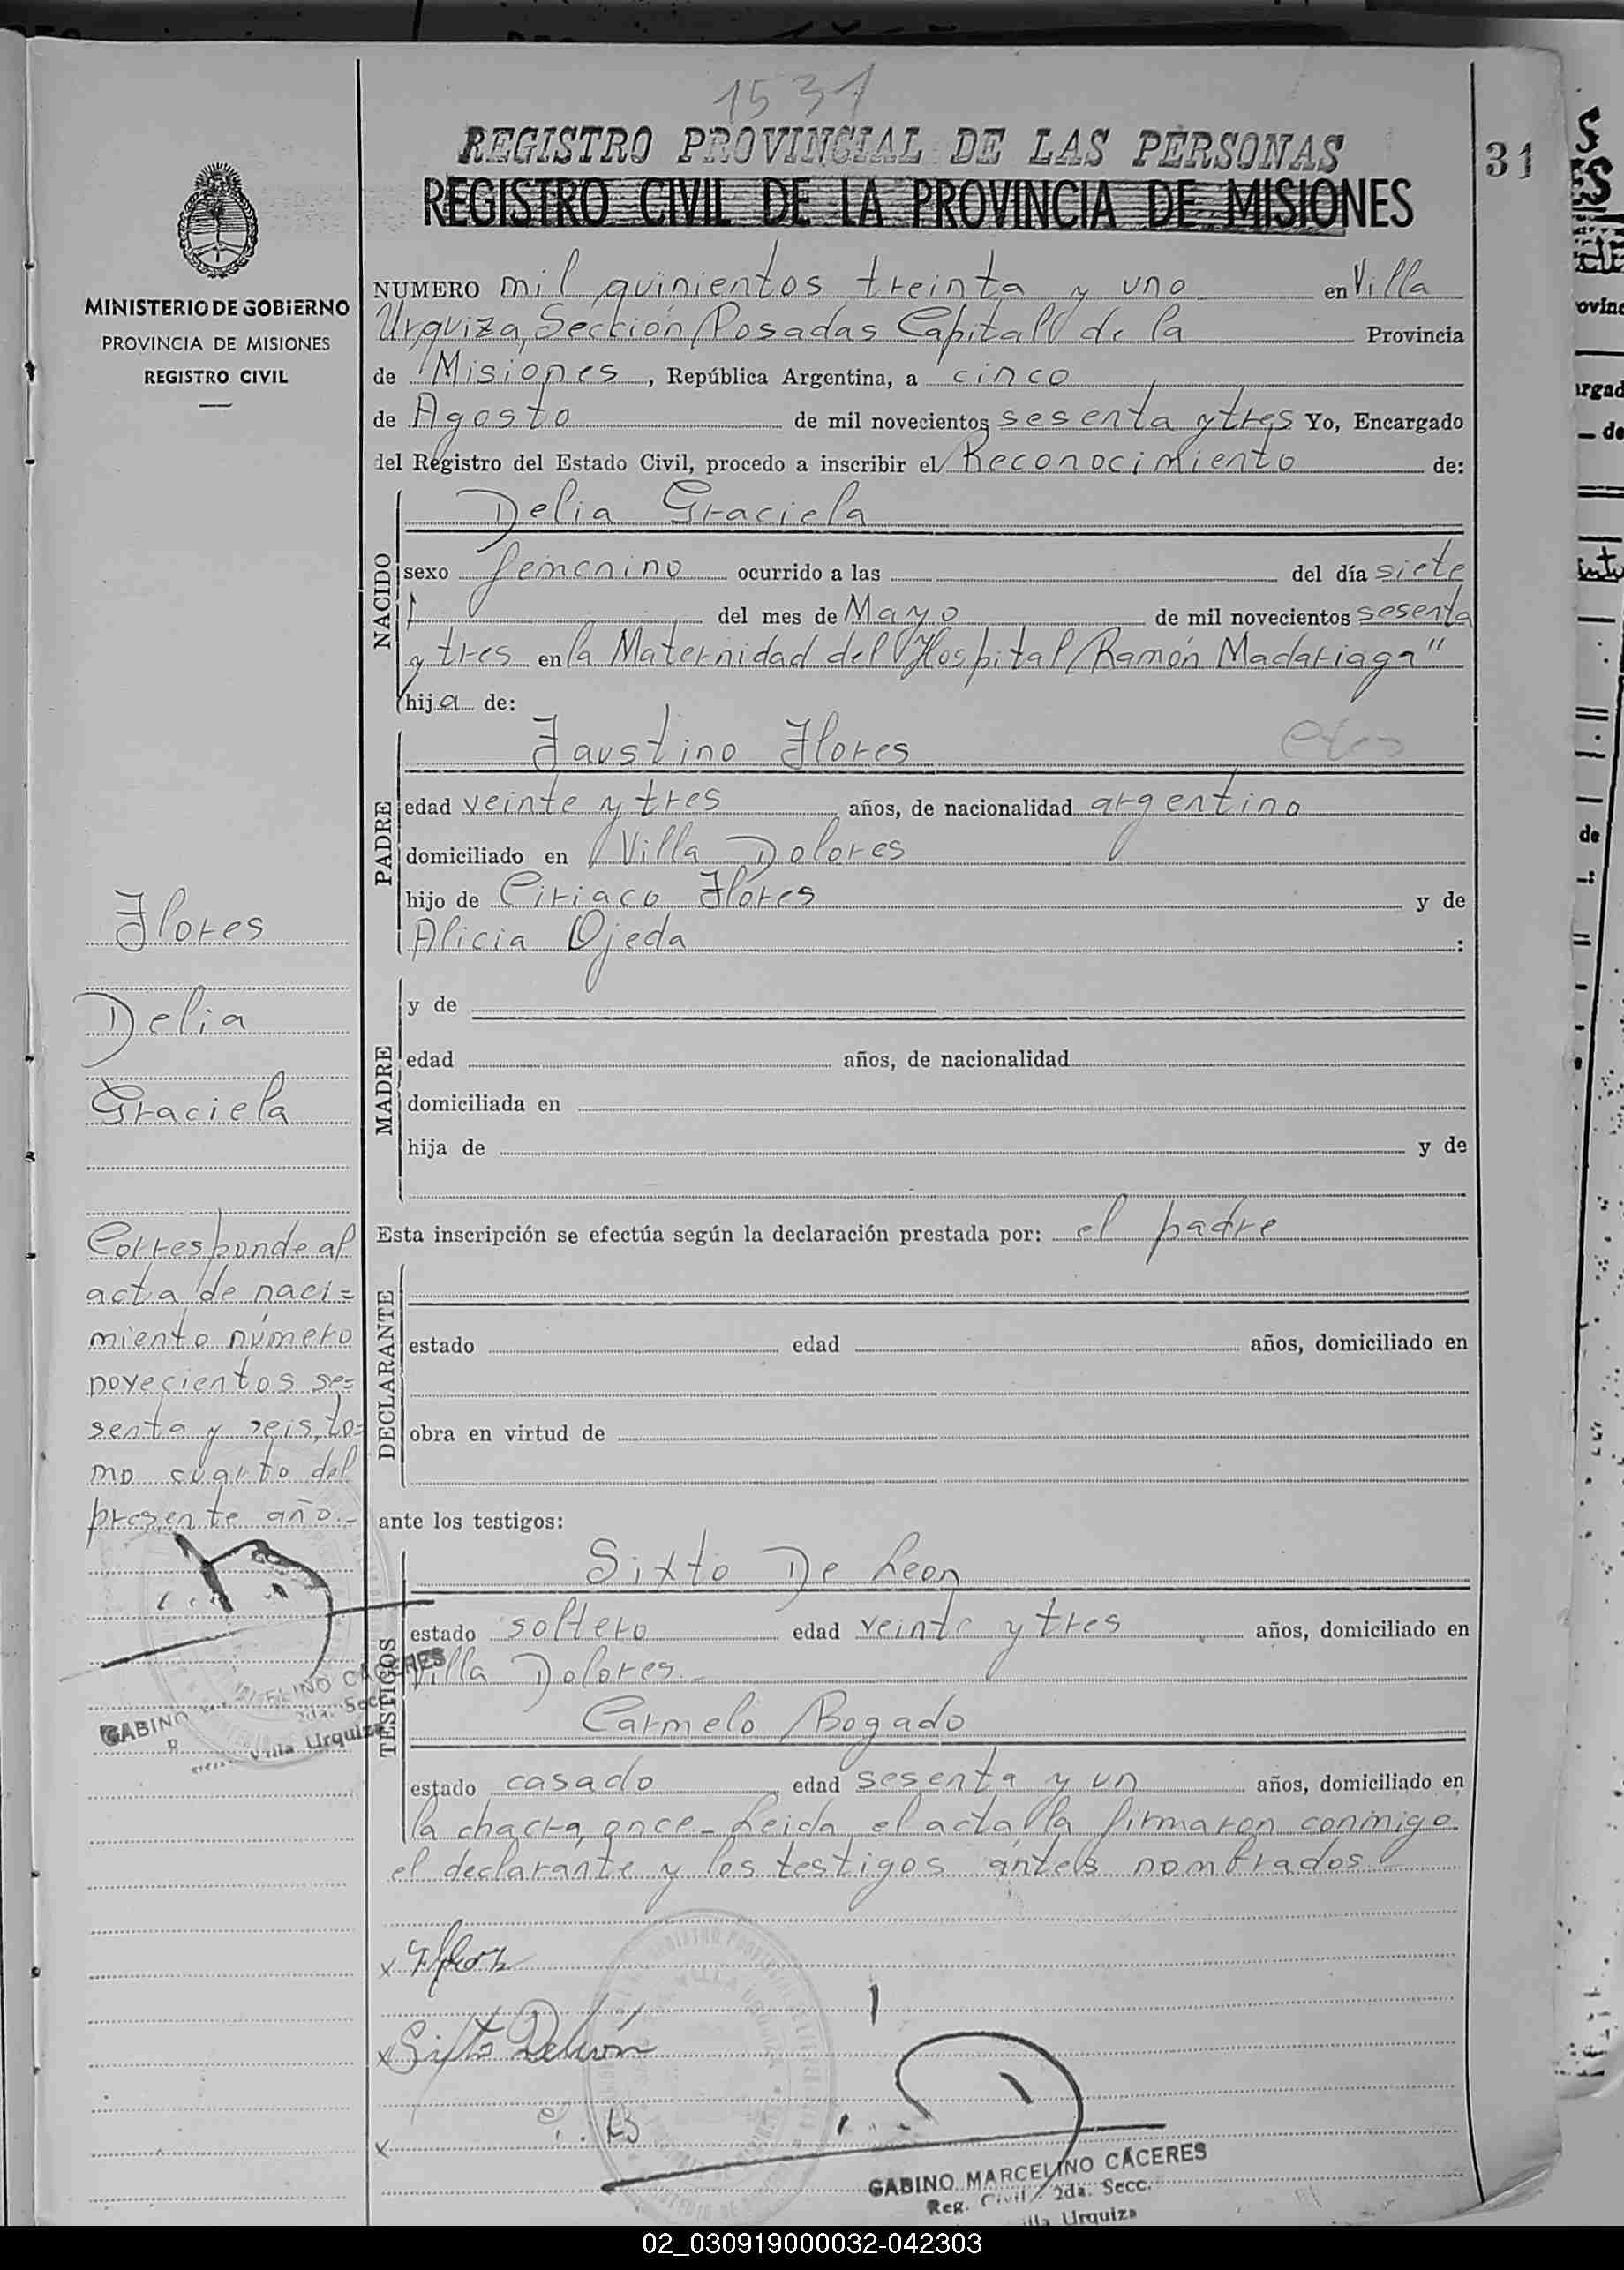 1531
REGISTRO PROVINCIAL DE LAS PERSONAS
31
REGISTRO CIVIL DE LA PROVINCIA DE MISIONES
MINISTERIO DE GOBIERNO
PROVINCIA DE MISIONES
REGISTRO CIVIL
NUMERO mil quinientos treinta y uno en Villa
Urquiza, Sección Posadas Capital de la Provincia
de Misiones, República Argentina, a cinco
de Agosto de mil novecientos sesenta y tres Yo, Encargado
del Registro del Estado Civil, procedo a inscribir el Reconocimiento de:
NACIDO
Delia Graciela
sexo femenino ocurrido a las del día siete
del mes de Mayo de mil novecientos sesenta
y tres en la Maternidad del Hospital Ramón Madariaga"
hija de:
PADRE
Faustino Flores
edad veinte y tres años, de nacionalidad argentino
domiciliado en Villa Dolores
hijo de Ciriaco Flores y de
Alicia Ojeda :
MADRE
y de
edad años, de nacionalidad
domiciliada en
hija de y de
Esta inscripción se efectúa según la declaración prestada por: el padre
DECLARANTE
estado edad años, domiciliado en
obra en virtud de
ante los testigos:
TESTIGOS
Sixto De Leon
estado soltero edad veinte y tres años, domiciliado en
Villa Dolores.-
Carmelo Bogado
estado casado edad sesenta y un años, domiciliado en
la chacra once- Leida el acta, la firmaron conmigo
el declarante y los testigos antes nombrados
Flores
Delia
Graciela
Corresponde al
acta de naci=
miento número
novecientos se=
senta y seis, to=
mo cuarto del
presente año.-
GABINO MARCELINO CACERES
2da. Secc.
Villa Urquiza
x
x Sixto Deleón
x
GABINO MARCELINO CÁCERES
Reg. Civil 2da. Secc.
Villa Urquiza
02_030919000032-042303